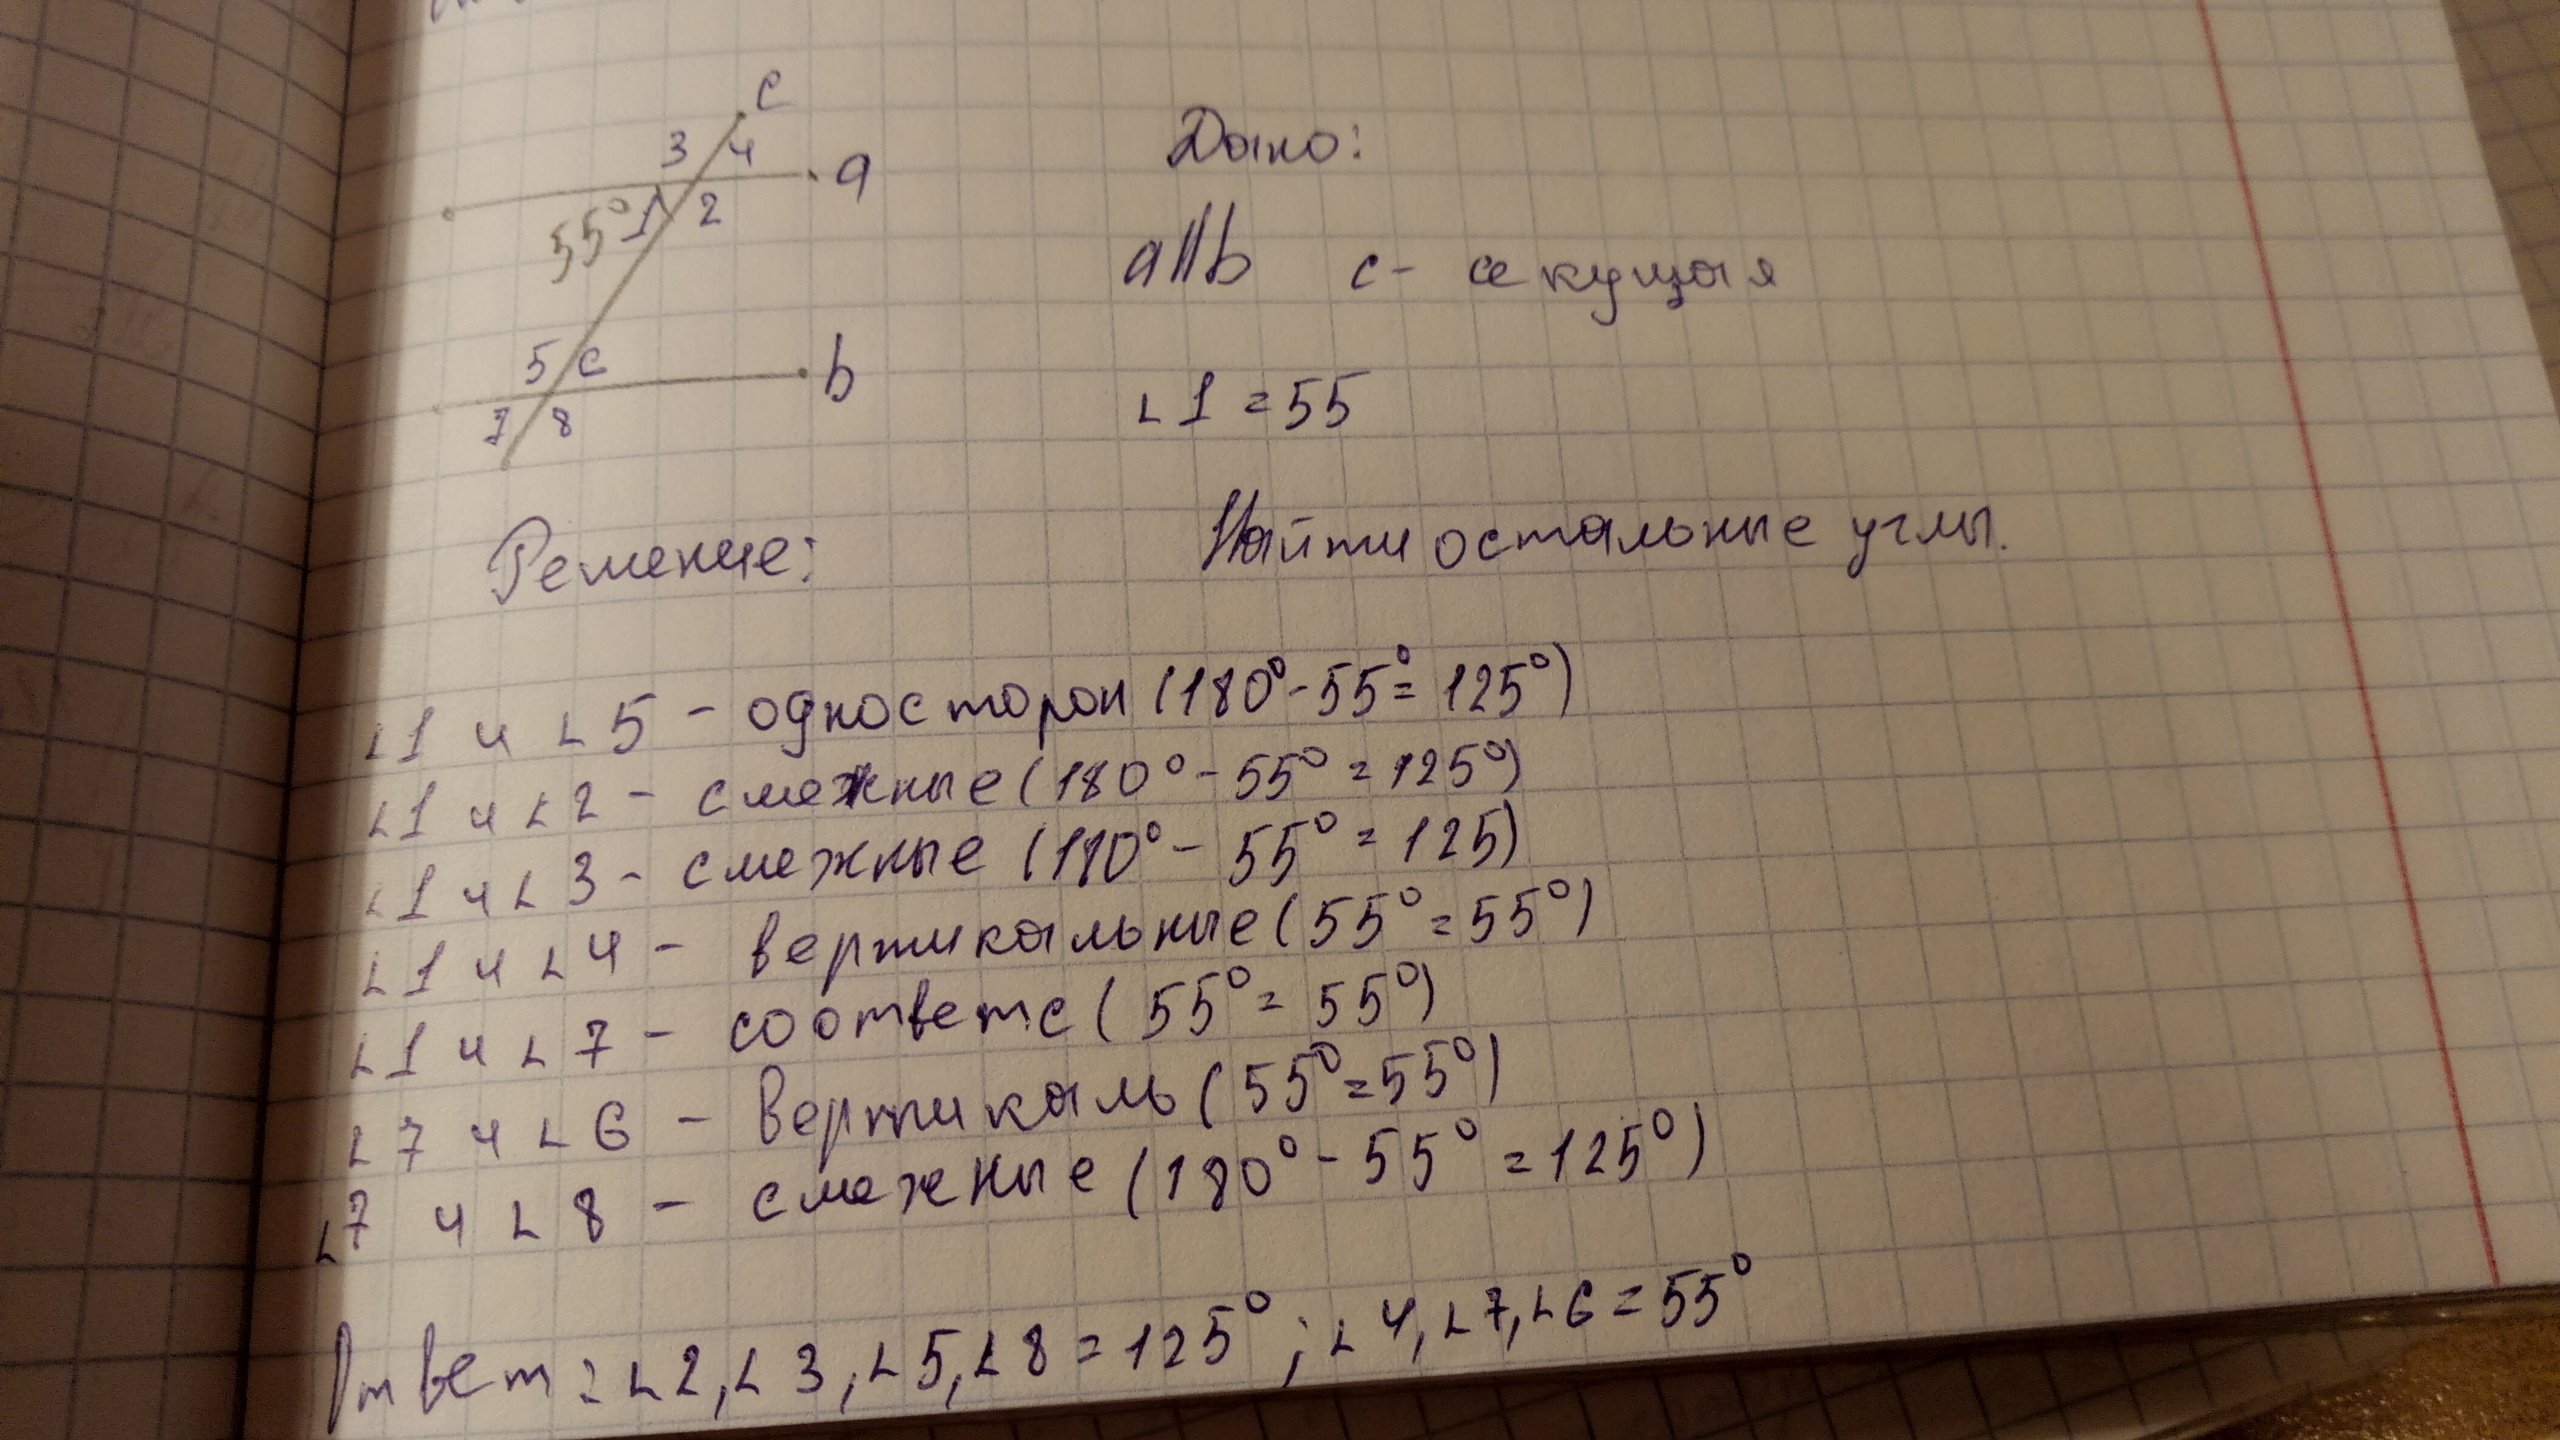 c
3 4
a
55° 1 2
5 6
b
7 8
Дано:
a∥b c - секущая
∠1 = 55
Найти остальные углы.
Решение:
∠1 и ∠5 - односторон (180° - 55° = 125°)
∠1 и ∠2 - смежные (180° - 55° = 125°)
∠1 и ∠3 - смежные (180° - 55° = 125)
∠1 и ∠4 - вертикальные (55° = 55°)
∠1 и ∠7 - соответс (55° = 55°)
∠7 и ∠6 - вертикаль (55° = 55°)
∠7 и ∠8 - смежные (180° - 55° = 125°)
Ответ: ∠2, ∠3, ∠5, ∠8 = 125°; ∠4, ∠7, ∠6 = 55°